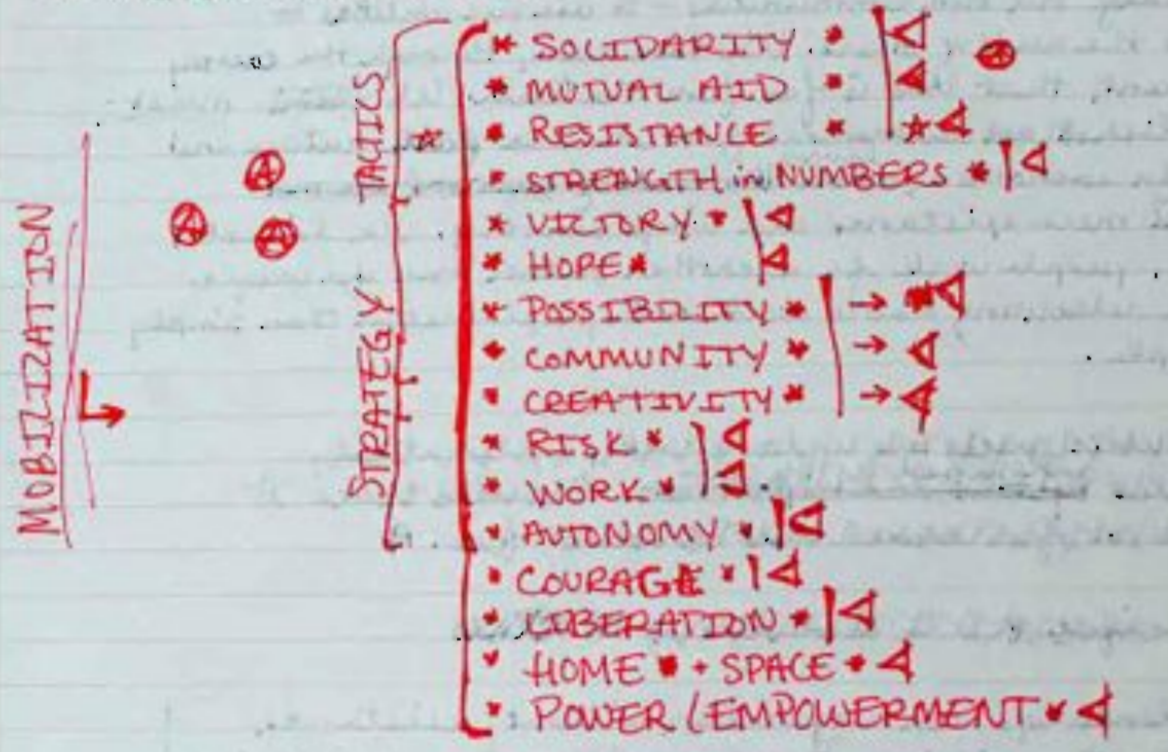 MOBILIZATION
TACTICS
STRATEGY
* SOLIDARITY *
* MUTUAL AID *
* RESISTANCE *
* STRENGTH in NUMBERS *
* VICTORY *
* HOPE *
* POSSIBILITY * →
* COMMUNITY * →
* CREATIVITY * →
* RISK *
* WORK *
* AUTONOMY *
* COURAGE *
* LIBERATION *
* HOME * + SPACE *
* POWER (EMPOWERMENT *